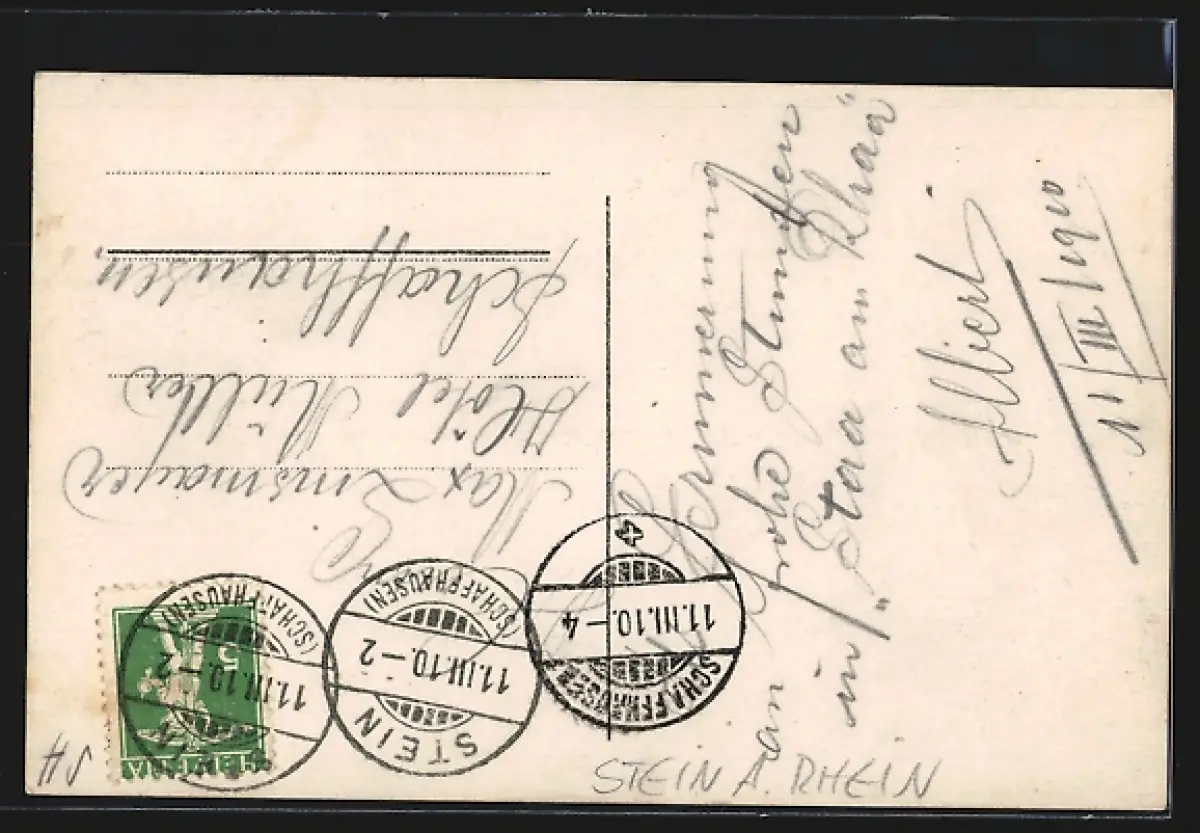 Max Linsmayer
Hôtel Müller
Schaffhausen.
Zur Erinnerung
an frohe Stunden
in "Staa am Rhaa"
Albert
11/III/1910
STEIN A. RHEIN
SH
HELVETIA
5
STEIN
11.III.10.–2
(SCHAFFHAUSEN)
STEIN
11.III.10.–2
(SCHAFFHAUSEN)
SCHAFFHAUSEN
11.III.10.–4